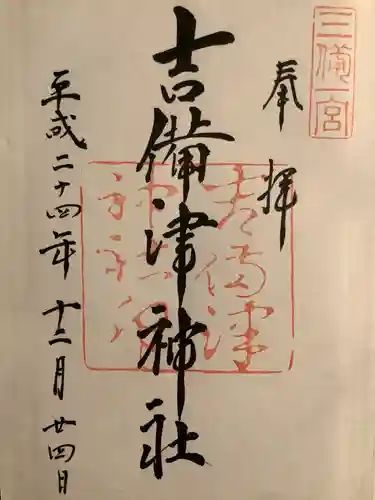 三備一宮
奉拝
吉備津神社
平成二十四年十二月廿四日